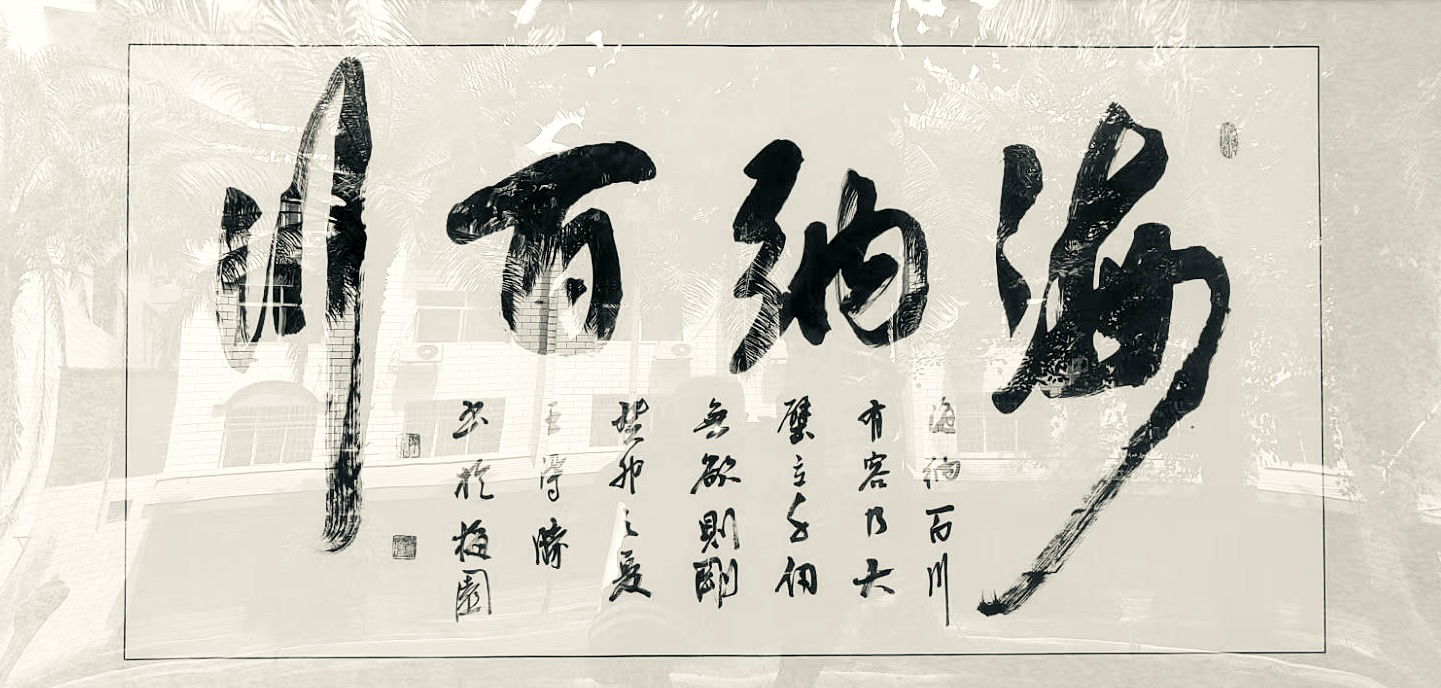 海納百川
海納百川
有容乃大
壁立千仞
無欲則剛
癸卯之夏
王得勝
书於梅園